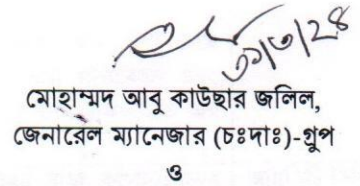 ৩১/৩/২৪
মোহাম্মদ আবু কাউছার জলিল,
জেনারেল ম্যানেজার (চঃদাঃ)-গ্রুপ
ও